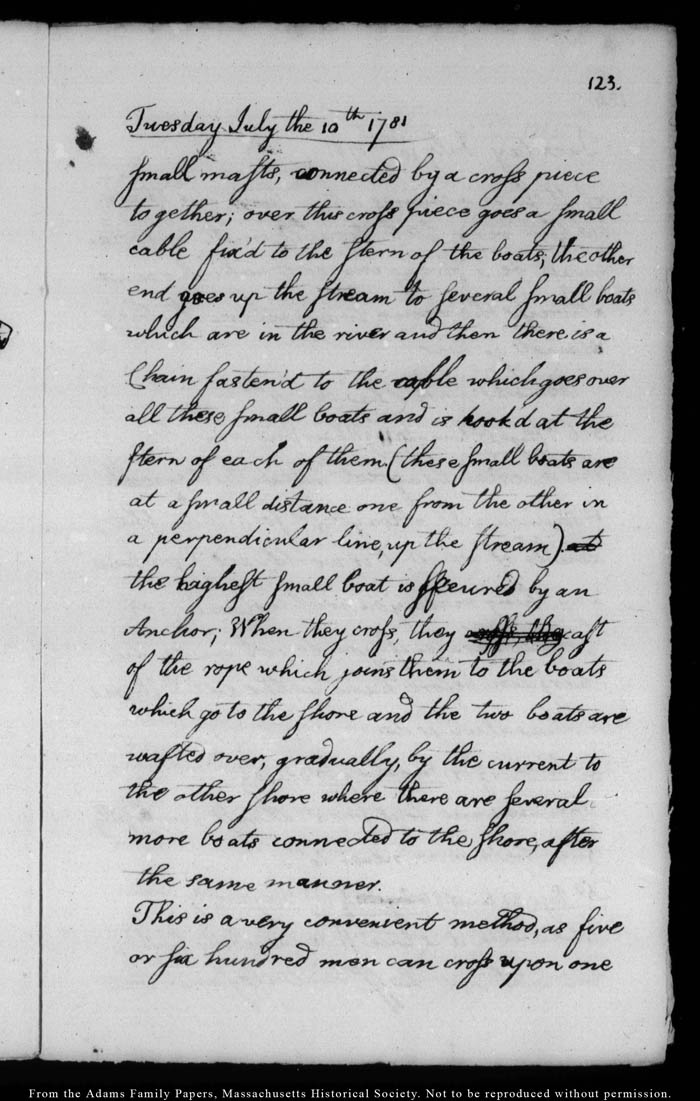 123.
Tuesday July the 10th 1781
small masts, connected by a cross piece
together; over this cross piece goes a small
cable fix'd to the stern of the boats; the other
end goes up the stream to several small boats
which are in the river and then there is a
Chain fasten'd to the cable which goes over
all these small boats and is hook'd at the
stern of each of them (these small boats are
at a small distance one from the other in
a perpendicular line, up the stream). at
the highest small boat is secured by an
Anchor; When they cross, they cast
of the rope which joins them to the boats
which go to the shore and the two boats are
wafted over, gradually, by the current to
the other shore where there are several
more boats connected to the shore, after
the same manner.
This is a very convenient method, as five
or six hundred men can cross upon one
From the Adams Family Papers, Massachusetts Historical Society. Not to be reproduced without permission.